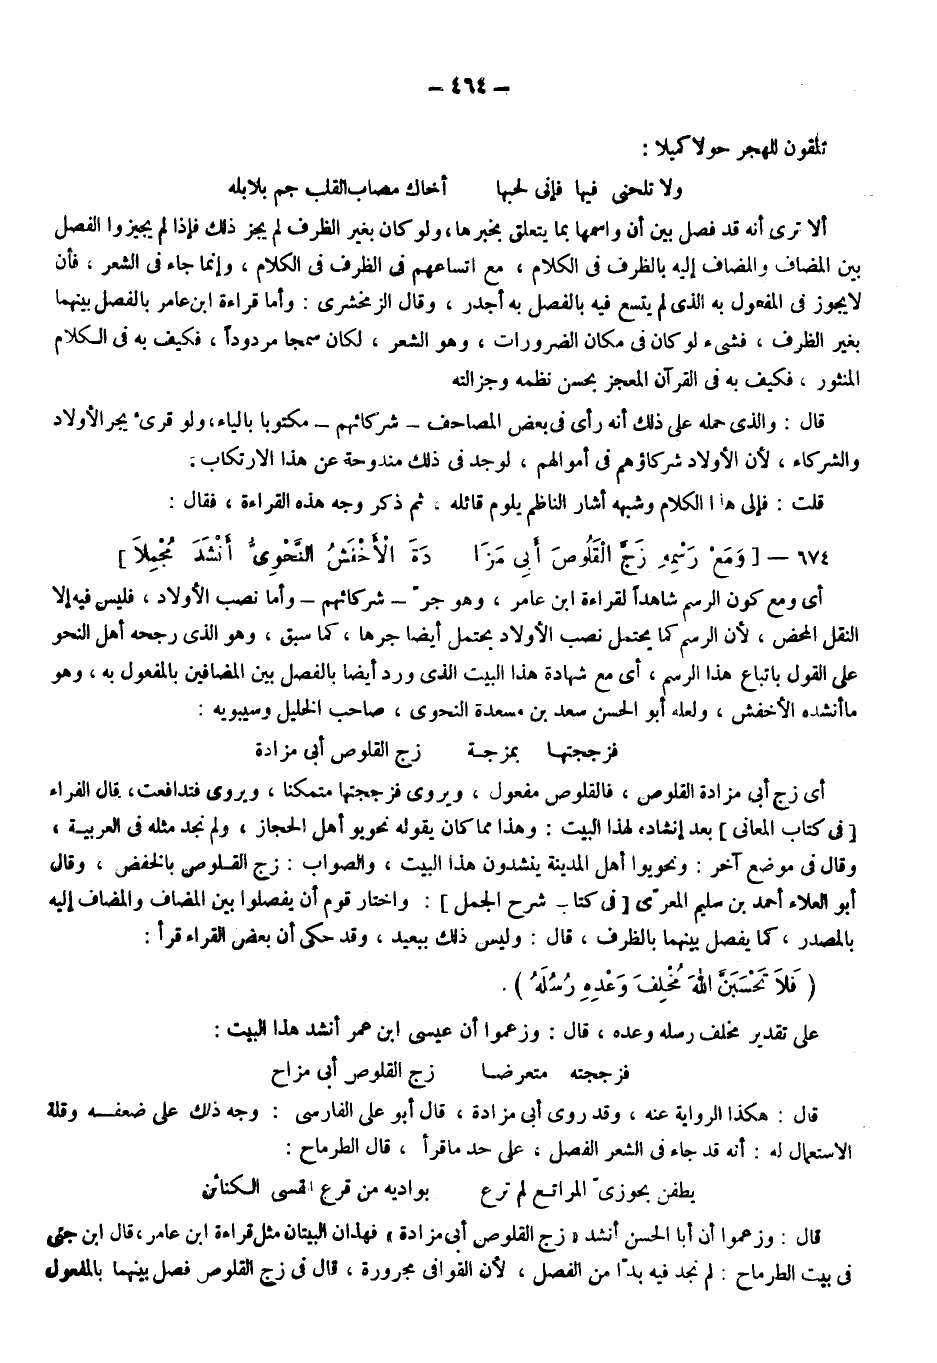 — ٤٦٤ —
تلقون للهجر حولا كميلا :
ولا تلحنى فيها فإنى لحبها أخاك مصاب القلب جم بلابله
ألا ترى أنه قد فصل بين أن واسمها بما يتعلق بخبرها ، ولو كان بغير الظرف لم يجز ذلك فإذا لم يجيزوا الفصل
بين المضاف والمضاف إليه بالظرف فى الكلام ، مع اتساعهم فى الظرف فى الكلام ، وإنما جاء فى الشعر ، فأن
لا يجوز فى المفعول به الذى لم يتسع فيه بالفصل به أجدر ، وقال الزمخشرى : وأما قراءة ابن عامر بالفصل بينهما
بغير الظرف ، فشىء لو كان فى مكان الضرورات ، وهو الشعر ، لكان سمجا مردوداً ، فكيف به فى الكلام
المنثور ، فكيف به فى القرآن المعجز بحسن نظمه وجزالته
قال : والذى حمله على ذلك أنه رأى فى بعض المصاحف – شركائهم – مكتوبا بالياء ، ولو قرئ بجر الأولاد
والشركاء ، لأن الأولاد شركاؤهم فى أموالهم ، لوجد فى ذلك مندوحة عن هذا الارتكاب .
قلت : فإلى هذا الكلام وشبهه أشار الناظم يلوم قائله . ثم ذكر وجه هذه القراءة ، فقال :
٦٧٤ – [ وَمَعْ رَسْمِهِ زَجَّ الْقَلُوصَ أَبِى مَزَا دَةَ الْأَخْفَشُ النَّحْوِىُّ أَنْشَدَ مُجْمِلاَ ]
أى ومع كون الرسم شاهداً لقراءة ابن عامر ، وهو جرّ – شركائهم – وأما نصب الأولاد ، فليس فيه إلا
النقل المحض ، لأن الرسم كما يحتمل نصب الأولاد يحتمل أيضا جرها ، كما سبق ، وهو الذى رجحه أهل النحو
على القول باتباع هذا الرسم ، أى مع شهادة هذا البيت الذى ورد أيضا بالفصل بين المضافين بالمفعول به ، وهو
ما أنشده الأخفش ، ولعله أبو الحسن سعد بن مسعدة النحوى ، صاحب الخليل وسيبويه :
فزججتها بمزجة زج القلوص أبى مزادة
أى زج أبى مزادة القلوص ، فالقلوص مفعول ، ويروى فزججتها متمكنا ، ويروى فتدافعت ، قال الفراء
[ فى كتاب المعانى ] بعد إنشاده لهذا البيت : وهذا مما كان يقوله نحويو أهل الحجاز ، ولم نجد مثله فى العربية ،
وقال فى موضع آخر : ونحويوا أهل المدينة ينشدون هذا البيت ، والصواب : زج القلوص بالخفض ، وقال
أبو العلاء أحمد بن سليم المعرّى [ فى كتاب شرح الجمل ] : واختار قوم أن يفصلوا بين المضاف والمضاف إليه
بالمصدر ، كما يفصل بينهما بالظرف ، قال : وليس ذلك ببعيد ، وقد حكى أن بعض القراء قرأ :
( فَلاَ تَحْسَبَنَّ اللهَ مُخْلِفَ وَعْدِهِ رُسُلَهُ ) .
على تقدير مخلف رسله وعده ، قال : وزعموا أن عيسى ابن عمر أنشد هذا البيت :
فزججته متعرضا زج القلوص أبى مزاح
قال : هكذا الرواية عنه ، وقد روى أبى مزادة ، قال أبو على الفارسى : وجه ذلك على ضعفه وقلة
الاستعمال له : أنه قد جاء فى الشعر الفصل ، على حد ماقرأ ، قال الطرماح :
يطفن بحوزىّ المراتع لم ترع بواديه من قرع القسى الكنائن
قال : وزعموا أن أبا الحسن أنشد « زج القلوص أبى مزادة » فهذان البيتان مثل قراءة ابن عامر ، قال ابن جنى
فى بيت الطرماح : لم نجد فيه بدّا من الفصل ، لأن القوافى مجرورة ، قال فى زج القلوص فصل بينهما بالمفعول